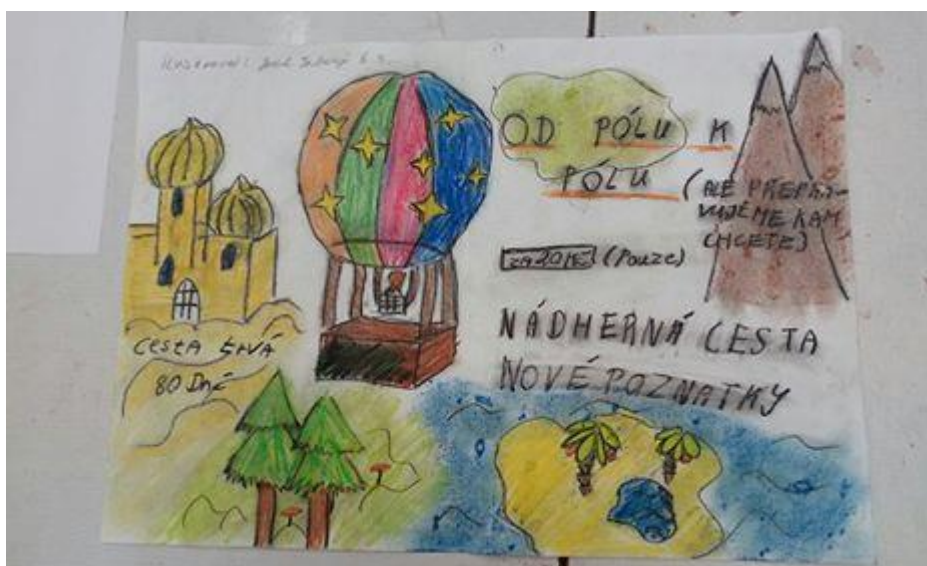 OD PÓLU K
PÓLU (ALE PŘEPRA-
VUJEME KAM
CHCETE)
(Pouze)
NÁDHERNÁ CESTA
NOVÉ POZNATKY
CESTA trvá
80 Dní